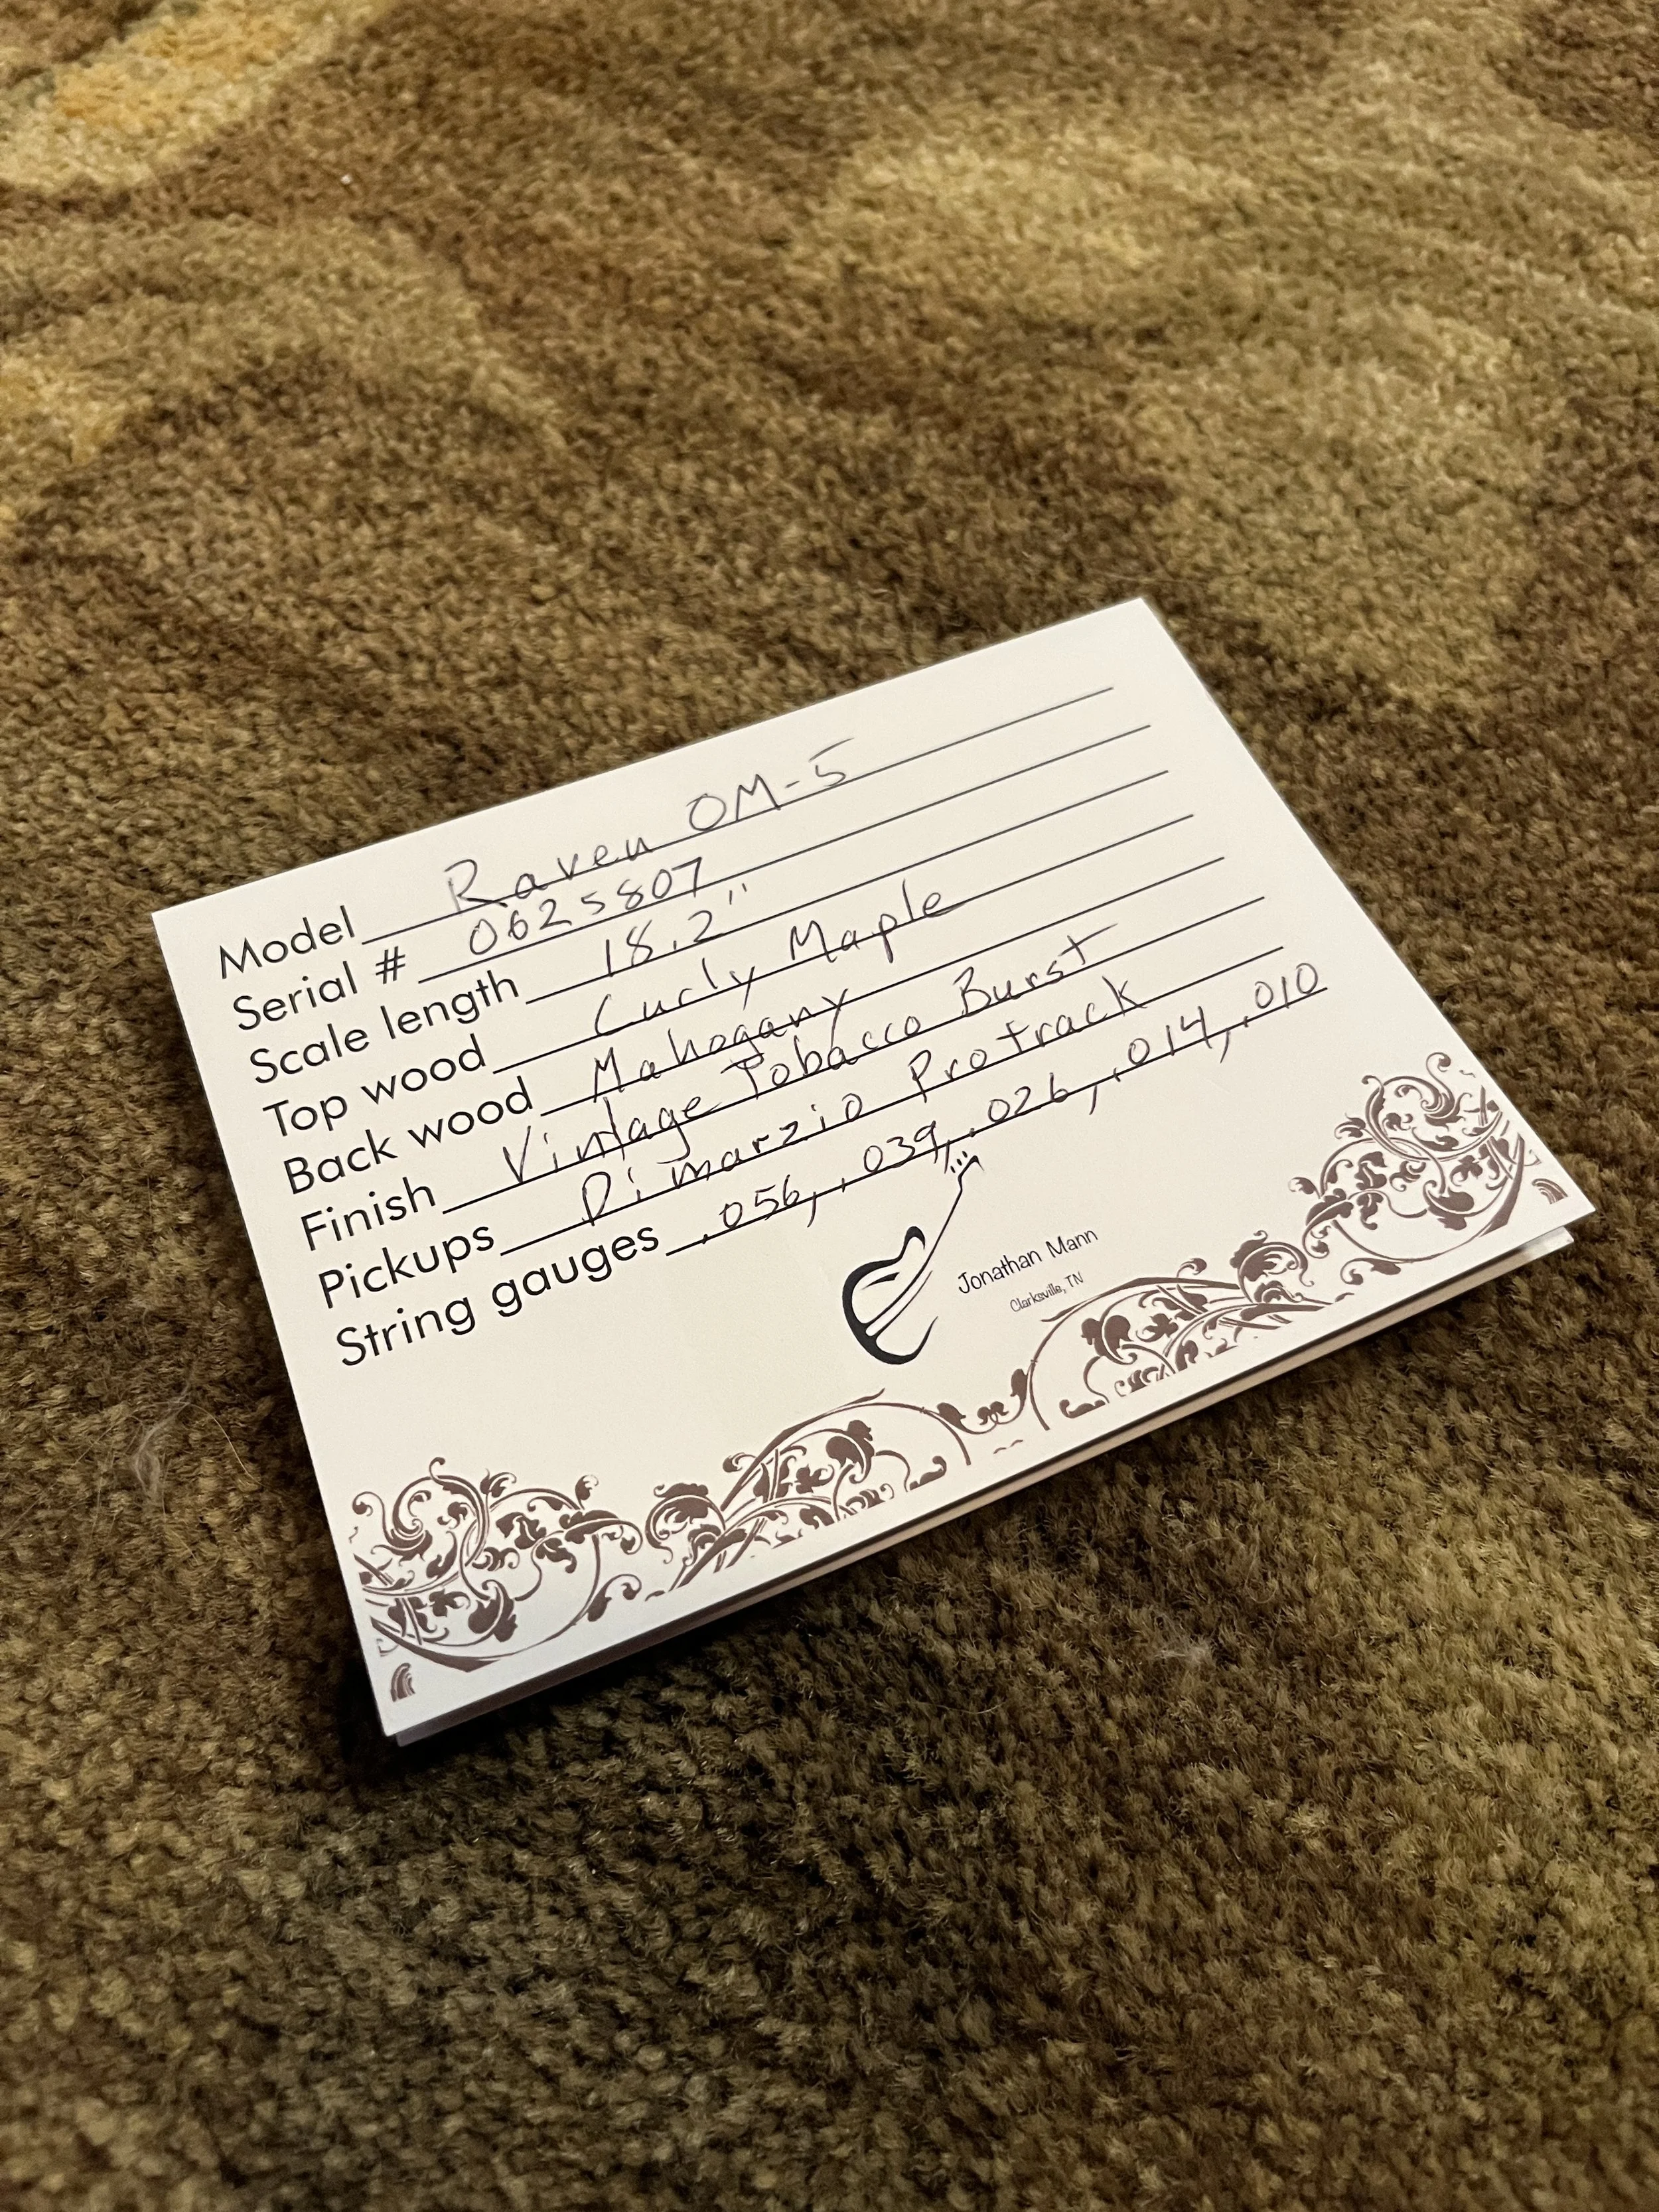 Model Raven OM-5
Serial # 0625807
Scale length 18.2"
Top wood Curly Maple
Back wood Mahogany
Finish Vintage Tobacco Burst
Pickups Dimarzio Protrack
String gauges .056, .039, .026, .014, .010
Jonathan Mann
Clarksville, TN